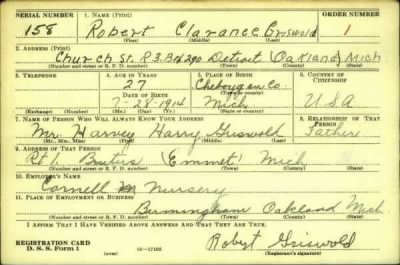 SERIAL NUMBER 1. NAME (Print) ORDER NUMBER
158 Robert Clarance Griswold 1
(First) (Middle) (Last)
2. ADDRESS (Print)
Church St. R3.Bx290 Detroit (Oakland) Mich
(Number and street or R. F. D. number) (Town) (County) (State)
3. TELEPHONE 4. AGE IN YEARS 5. PLACE OF BIRTH 6. COUNTRY OF CITIZENSHIP
27 Cheboygan Co.
DATE OF BIRTH (Town or county)
7-28-1914 Mich USA
(Exchange) (Number) (Mo.) (Day) (Yr.) (State or country)
7. NAME OF PERSON WHO WILL ALWAYS KNOW YOUR ADDRESS 8. RELATIONSHIP OF THAT PERSON
Mr. Harvey Harry Griswold Father
(Mr., Mrs., Miss) (First) (Middle) (Last)
9. ADDRESS OF THAT PERSON
Rt 1. Brutus (Emmet) Mich
(Number and street or R. F. D. number) (Town) (County) (State)
10. EMPLOYER'S NAME
Cornell Nursery
11. PLACE OF EMPLOYMENT OR BUSINESS
Birmingham Oakland Mich
(Number and street or R. F. D. number) (Town) (County) (State)
I AFFIRM THAT I HAVE VERIFIED ABOVE ANSWERS AND THAT THEY ARE TRUE.
REGISTRATION CARD
D. S. S. Form 1 16—17105 Robert Griswold
(Registrant's signature)